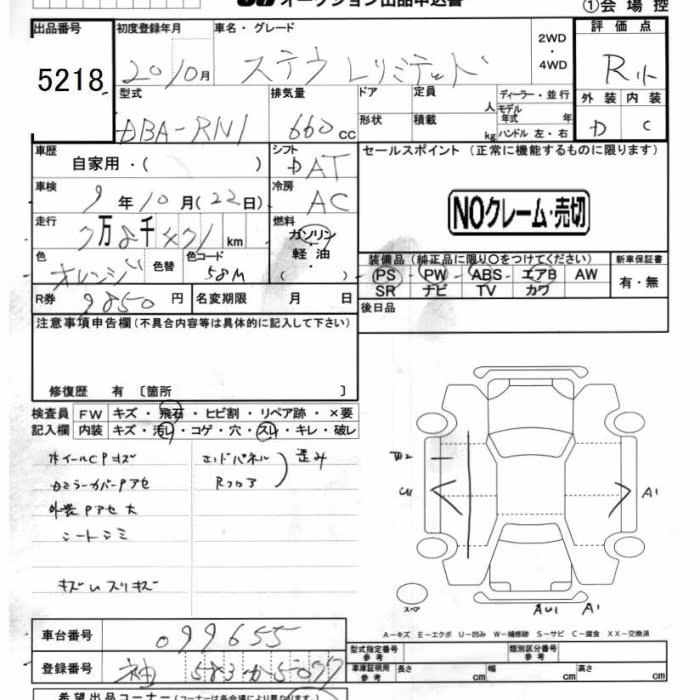 オークション出品申込書 ①会場控
出品番号 初度登録年月 車名・グレード 2WD 評価点
5218 20 10月 ステラ Lリミテッド ・4WD R小
型式 排気量 ドア 定員 人 ディーラー・並行 外装 内装
DBA-RN1 660cc 形状 積載 kg モデル年式 年 D C
ハンドル 左・右
車歴 シフト セールスポイント (正常に機能するものに限ります)
自家用・( ) AT
車検 冷房
9年10月(22日) AC NOクレーム・売切
走行 燃料
7万8千 71 km ガソリン
色 色替 色コード 軽油・ 装備品(純正品に限り○をつけてください) 新車保証書
オレンジ 58M ( ) PS PW ABS エアB AW 有・無
SR ナビ TV カワ
R券 9850円 名変期限 月 日 後日品
注意事項申告欄(不具合内容等は具体的に記入して下さい)
修復歴 有 〔箇所 〕
検査員 FW キズ・飛石・ヒビ割・リペア跡・×要
記入欄 内装 キズ・汚れ・コゲ・穴・スレ・キレ・破レ
ホイールCPキズ エンドパネル 歪み
ドアミラーカバーPアセ Rフロア
外装Pアセ大 W2
シートシミ A1
キズUスリキズ
スペア AU1 A1
A−キズ E−エクボ U−凹み W−補修跡 S−サビ C−腐食 XX−交換済
車台番号 099655 型式指定番号 類別区分番号
登録番号 袖 583 か 5077 車庫証明用参考 長さ cm 幅 cm 高さ cm
希望出品コーナー(コーナーは各会場により異なります。)